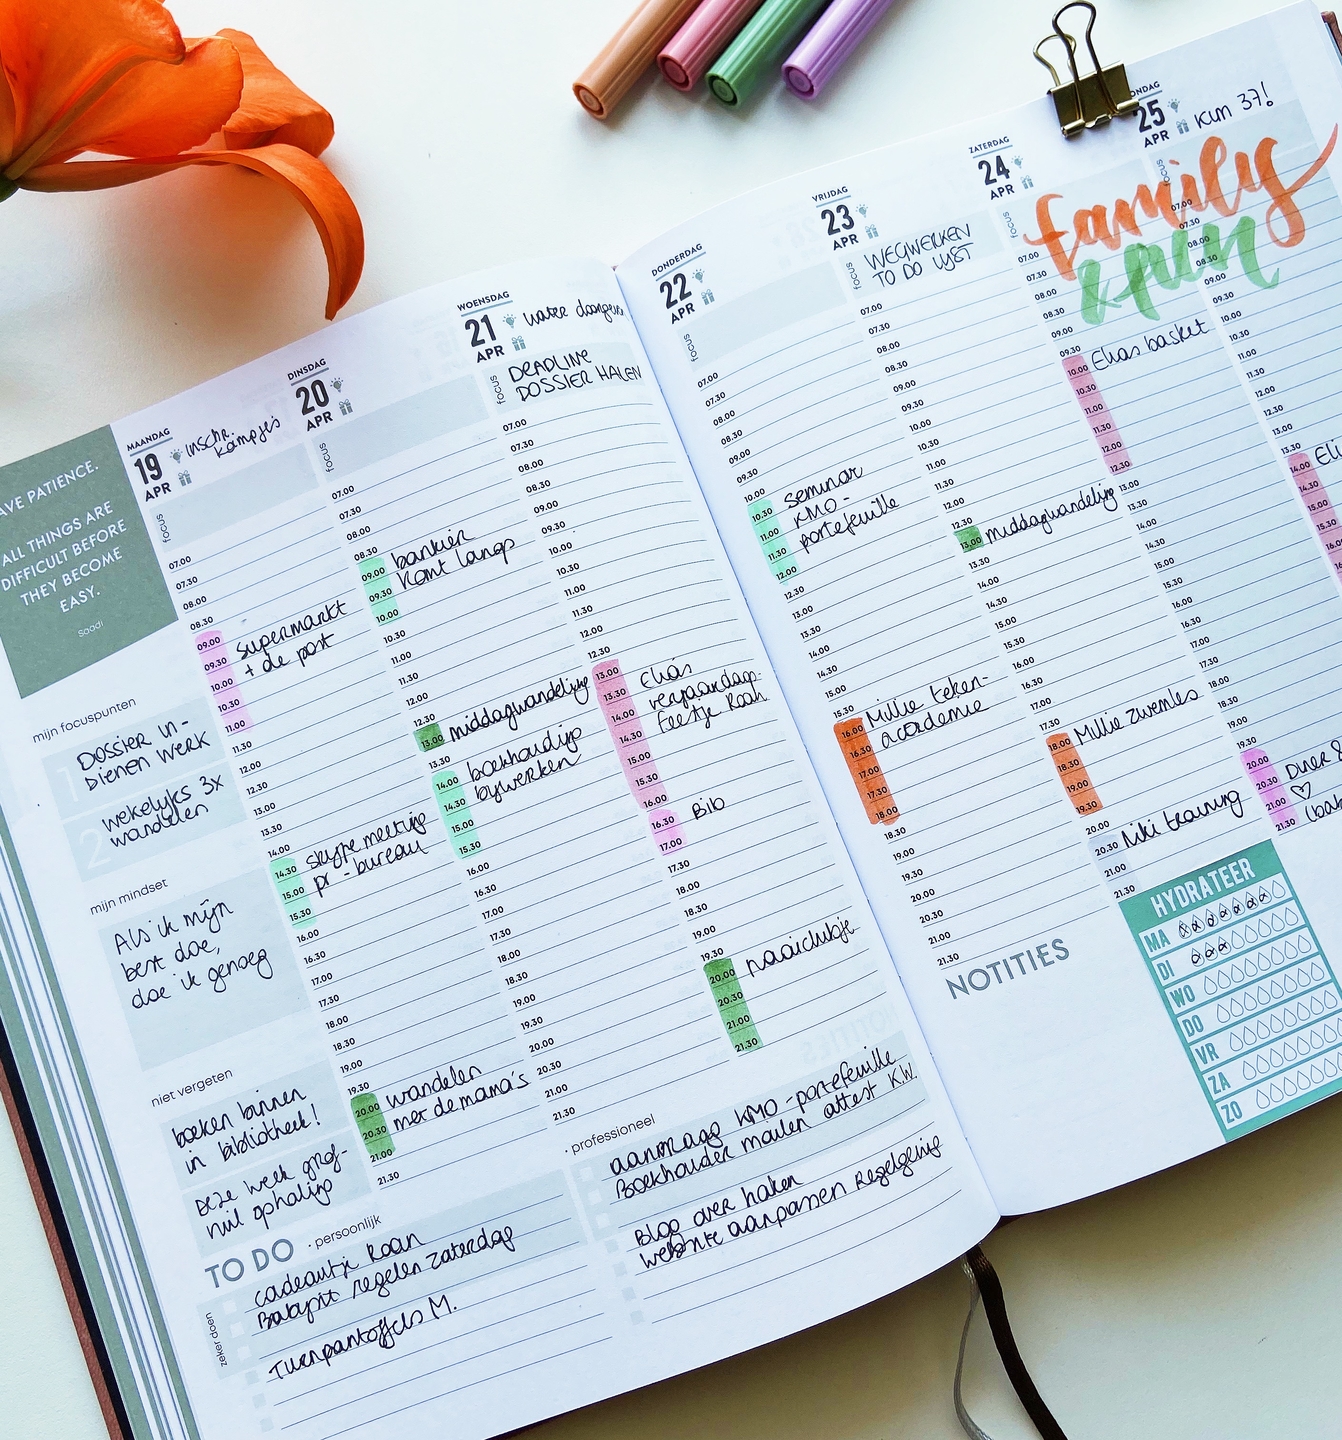 AVE PATIENCE.
ALL THINGS ARE
DIFFICULT BEFORE
THEY BECOME
EASY.
Saadi
mijn focuspunten
1
DOSSIER IN-
DIENEN WERK
2
wekelijks 3x
wandelen
mijn mindset
Als ik mijn
best doe,
doe ik genoeg
niet vergeten
boeken binnen
in bibliotheek!
Deze week grof-
vuil ophaling
MAANDAG
19
APR
inschr.
kampjes
focus
07.00
07.30
08.00
08.30
09.00
09.30
10.00
10.30
11.00
11.30
12.00
12.30
13.00
13.30
14.00
14.30
15.00
15.30
16.00
16.30
17.00
17.30
18.00
18.30
19.00
19.30
20.00
20.30
21.00
21.30
supermarkt
+ de post
skype meeting
pr-bureau
wandelen
met de mama's
DINSDAG
20
APR
focus
07.00
07.30
08.00
08.30
09.00
09.30
10.00
10.30
11.00
11.30
12.00
12.30
13.00
13.30
14.00
14.30
15.00
15.30
16.00
16.30
17.00
17.30
18.00
18.30
19.00
19.30
20.00
20.30
21.00
21.30
bankier
komt langs
middagwandeling
boekhouding
bijwerken
WOENSDAG
21
APR
water
focus
DEADLINE
DOSSIER HALEN
07.00
07.30
08.00
08.30
09.00
09.30
10.00
10.30
11.00
11.30
12.00
12.30
13.00
13.30
14.00
14.30
15.00
15.30
16.00
16.30
17.00
17.30
18.00
18.30
19.00
19.30
20.00
20.30
21.00
21.30
Elias
verjaardags-
feestje Roan
Bib
naaiclubje
TO DO
· persoonlijk
zeker doen
cadeautje Roan
Babysit regelen zaterdag
Turnpantoffels M.
· professioneel
aanvraag KMO-portefeuille
Boekhouder mailen attest K.W.
Blog over haken
website aanpassen
DONDERDAG
22
APR
focus
07.00
07.30
08.00
08.30
09.00
09.30
10.00
10.30
11.00
11.30
12.00
12.30
13.00
13.30
14.00
14.30
15.00
15.30
16.00
16.30
17.00
17.30
18.00
18.30
19.00
19.30
20.00
20.30
21.00
21.30
seminar
KMO-
portefeuille
Millie teken-
academie
VRIJDAG
23
APR
focus
WEGWERKEN
TO DO LIJST
07.00
07.30
08.00
08.30
09.00
09.30
10.00
10.30
11.00
11.30
12.00
12.30
13.00
13.30
14.00
14.30
15.00
15.30
16.00
16.30
17.00
17.30
18.00
18.30
19.00
19.30
20.00
20.30
21.00
21.30
middagwandeling
Millie zwemles
Niki training
ZATERDAG
24
APR
focus
family
07.00
07.30
08.00
08.30
09.00
09.30
10.00
10.30
11.00
11.30
12.00
12.30
13.00
13.30
14.00
14.30
15.00
15.30
16.00
16.30
17.00
17.30
18.00
18.30
19.00
19.30
20.00
20.30
21.00
21.30
Elias basket
ONDAG
25
APR
Kim 37!
focus
07.00
07.30
08.00
08.30
09.00
09.30
10.00
10.30
11.00
11.30
12.00
12.30
13.00
14.00
14.30
15.00
15.30
NOTITIES
HYDRATEER
MA
DI
WO
DO
VR
ZA
ZO